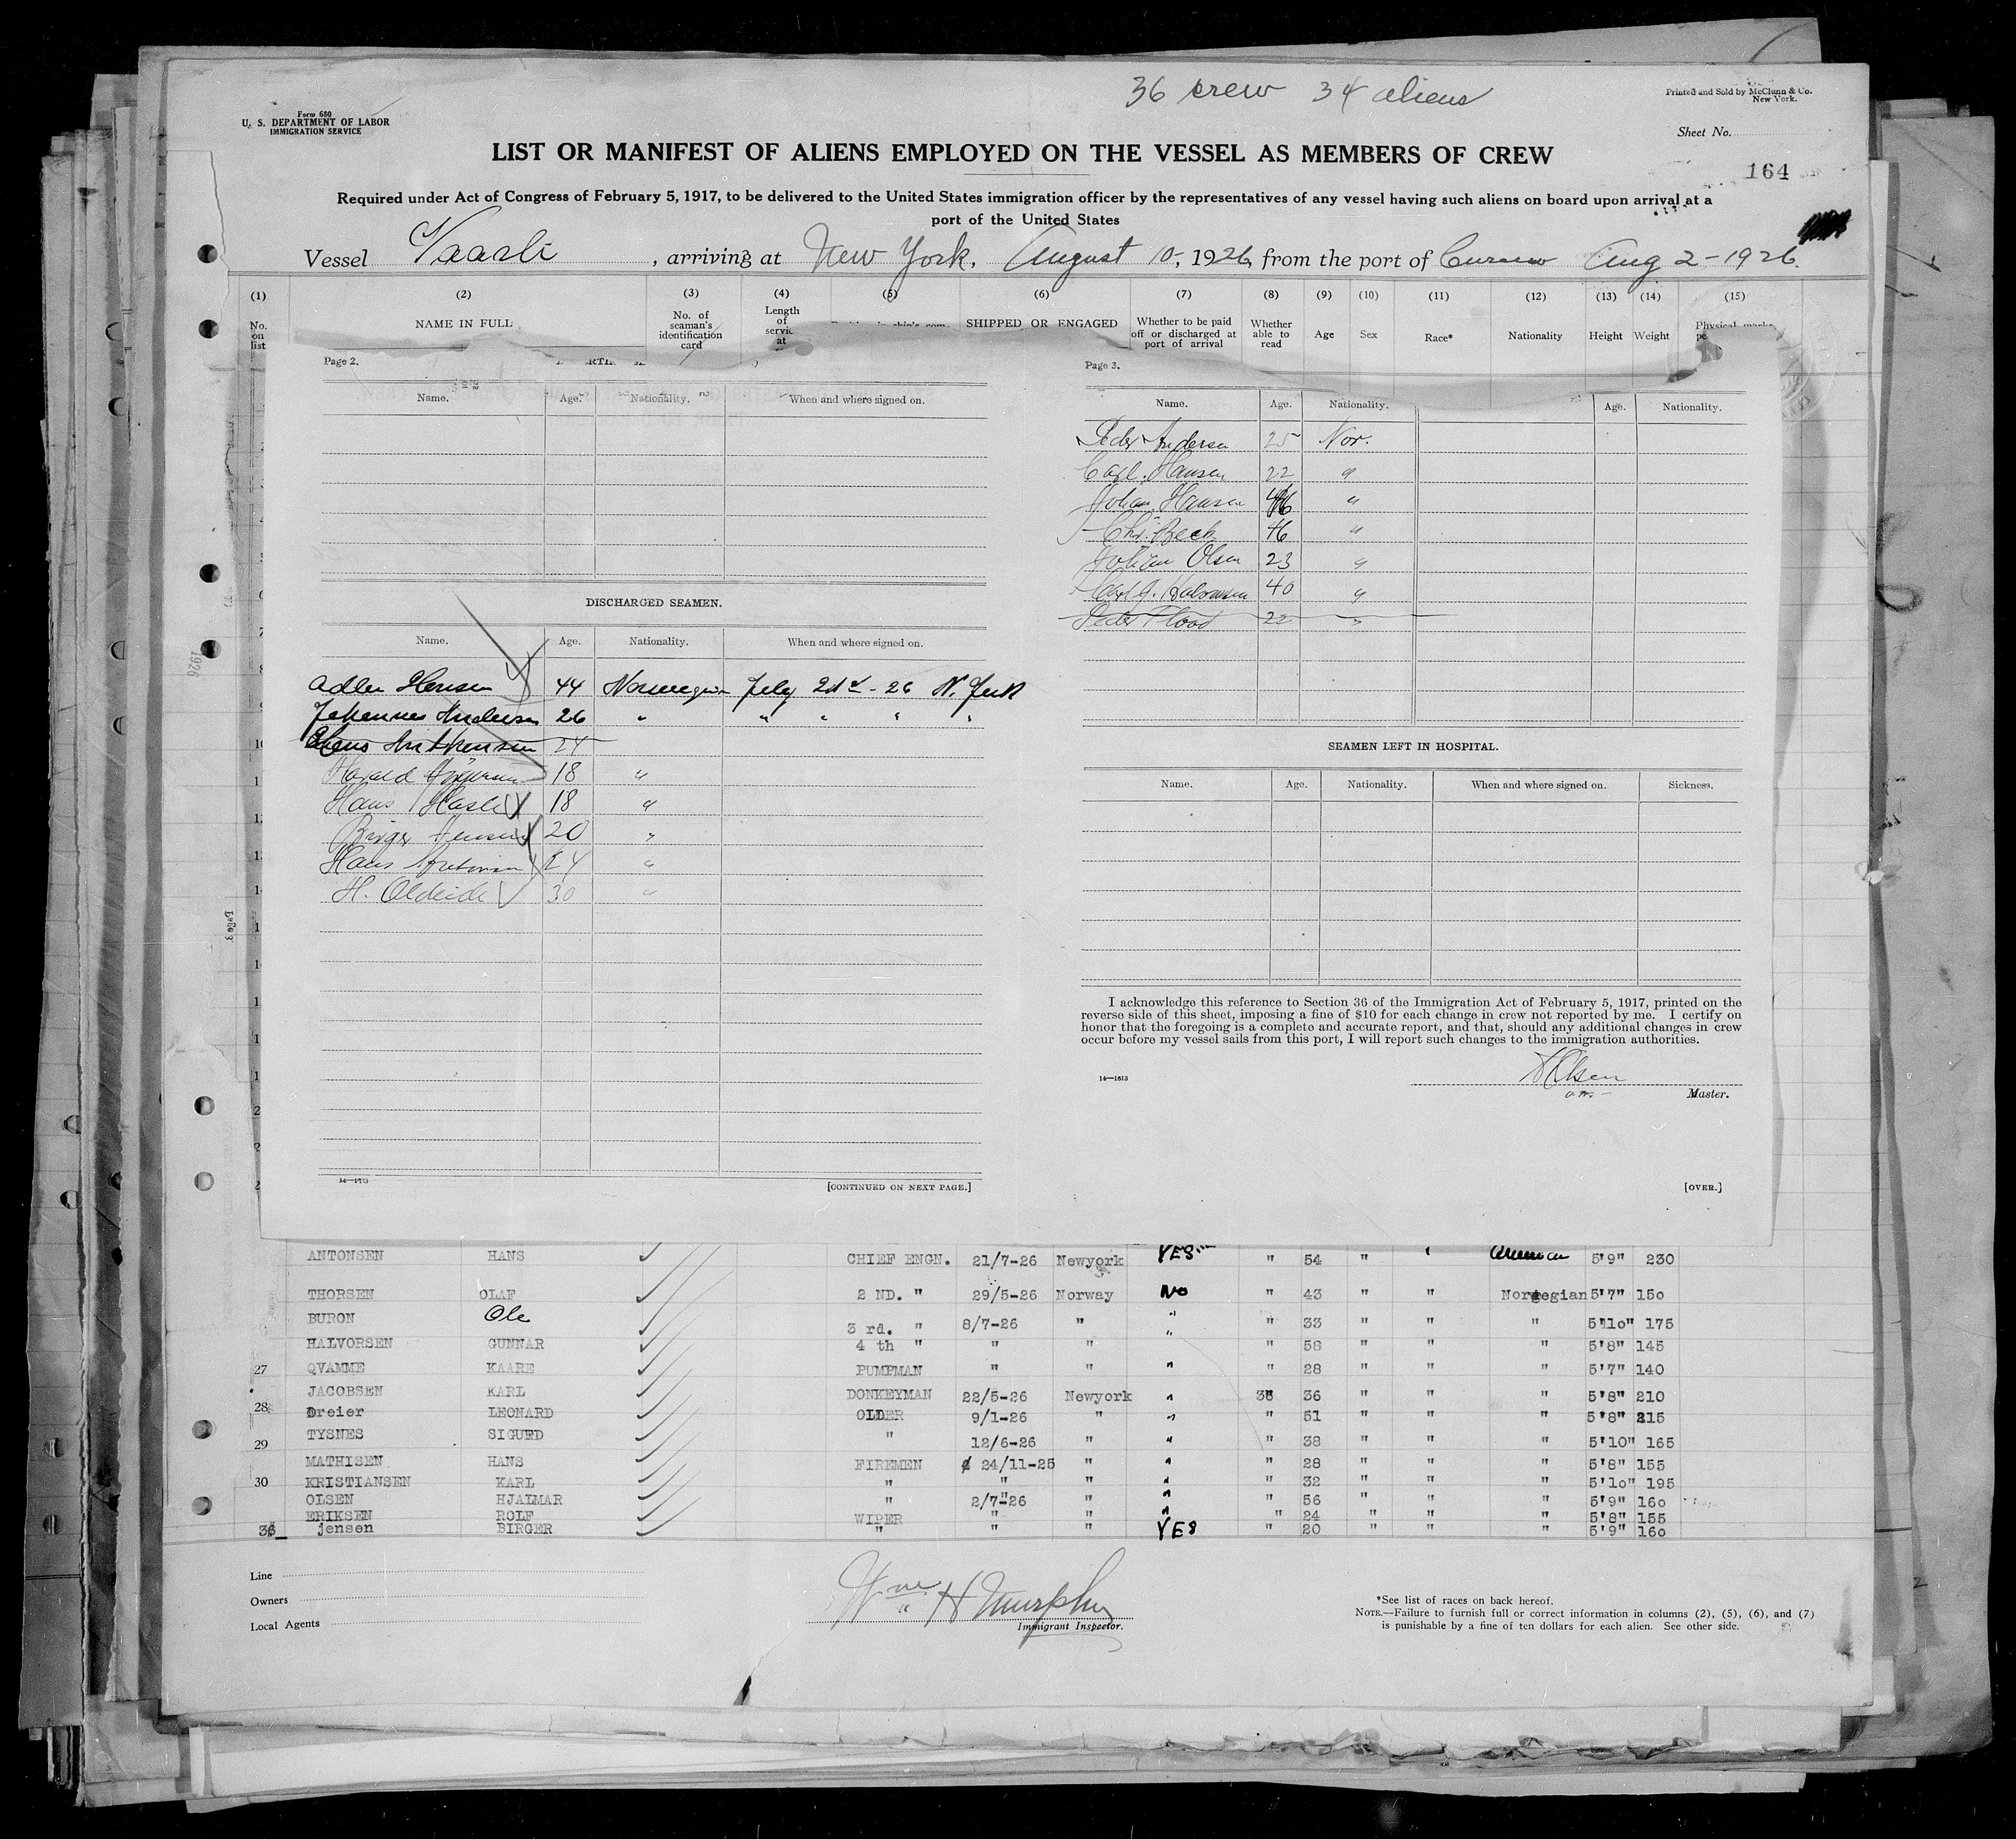 36 crew 34 aliens
Form 680
U. S. DEPARTMENT OF LABOR
IMMIGRATION SERVICE
Printed and Sold by McClunn & Co.
New York.
Sheet No.
164
LIST OR MANIFEST OF ALIENS EMPLOYED ON THE VESSEL AS MEMBERS OF CREW
Required under Act of Congress of February 5, 1917, to be delivered to the United States immigration officer by the representatives of any vessel having such aliens on board upon arrival at a
port of the United States
Vessel Vaarli, arriving at New York, August 10, 1926, from the port of Aug 2-1926.
(1) (2) (3) (4) (5) (6) (7) (8) (9) (10) (11) (12) (13) (14) (15)
No. on list NAME IN FULL No. of seaman's identification card Length of service at SHIPPED OR ENGAGED Whether to be paid off or discharged at port of arrival Whether able to read Age Sex Race* Nationality Height Weight Physical marks
Page 2.
Name. Age. Nationality. When and where signed on.
DISCHARGED SEAMEN.
Name. Age. Nationality. When and where signed on.
Adler Hansen 44 Norwegian July 2nd - 26 N. York
Johannes Andersen 26 " " " " "
Hans 24
Harald 18 "
Hans Hasle 18 "
Birger Jensen 20 "
Hans 24 "
H. Oldeide 30 "
14—1613
[CONTINUED ON NEXT PAGE.]
Page 3.
Name. Age. Nationality. Age. Nationality.
Peder Andersen 25 Nor.
Carl Hansen 22 "
Johan Hansen 46 "
Chr. Beck 46 "
Johan Olsen 23 "
Karl J. Halvorsen 40 "
Peder Flood 22 "
SEAMEN LEFT IN HOSPITAL.
Name. Age. Nationality. When and where signed on. Sickness.
I acknowledge this reference to Section 36 of the Immigration Act of February 5, 1917, printed on the
reverse side of this sheet, imposing a fine of $10 for each change in crew not reported by me. I certify on
honor that the foregoing is a complete and accurate report, and that, should any additional changes in crew
occur before my vessel sails from this port, I will report such changes to the immigration authorities.
Olsen
14—1613
Master.
[OVER.]
1926
Page 3
ANTONSEN HANS CHIEF ENGN. 21/7-26 Newyork YES " 54 " " 5'9" 230
THORSEN OLAF 2 ND. " 29/5-26 Norway No " 43 " " Norwegian 5'7" 150
BURON Ole 3 rd. " 8/7-26 " " " 33 " " " 5'10" 175
HALVORSEN GUNNAR 4 th " " " " " 58 " " " 5'8" 145
27 QVAMME KAARE PUMPMAN " " " " 28 " " " 5'7" 140
JACOBSEN KARL DONKEYMAN 22/5-26 Newyork " 36 36 " " " 5'8" 210
28 Dreier LEONARD OLDER 9/1-26 " " " 51 " " " 5'8" 215
TYSNES SIGURD " 12/6-26 " " " 38 " " " 5'10" 165
29
MATHISEN HANS FIREMEN 24/11-25 " " " 28 " " " 5'8" 155
30 KRISTIANSEN KARL " " " " " 32 " " " 5'10" 195
OLSEN HJALMAR " 2/7-26 " " " 56 " " " 5'9" 160
ERIKSEN ROLF WIPER " " " " 24 " " " 5'8" 155
36 jensen BIRGER " " " YES " 20 " " " 5'9" 160
Line
Owners
Local Agents
Wm H Murphy
Immigrant Inspector.
*See list of races on back hereof.
NOTE.—Failure to furnish full or correct information in columns (2), (5), (6), and (7)
is punishable by a fine of ten dollars for each alien. See other side.